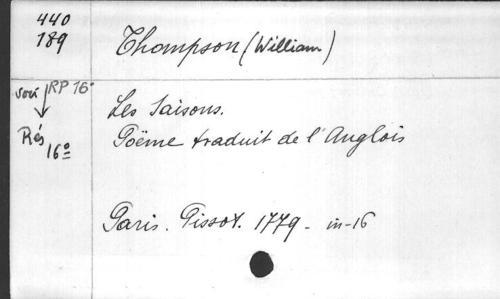 440
189
Thompson (William)
voir RP 16°
Rés 16°
Les Saisons.
Poëme traduit de l'Anglois
Paris. Pissot. 1779 - in-16